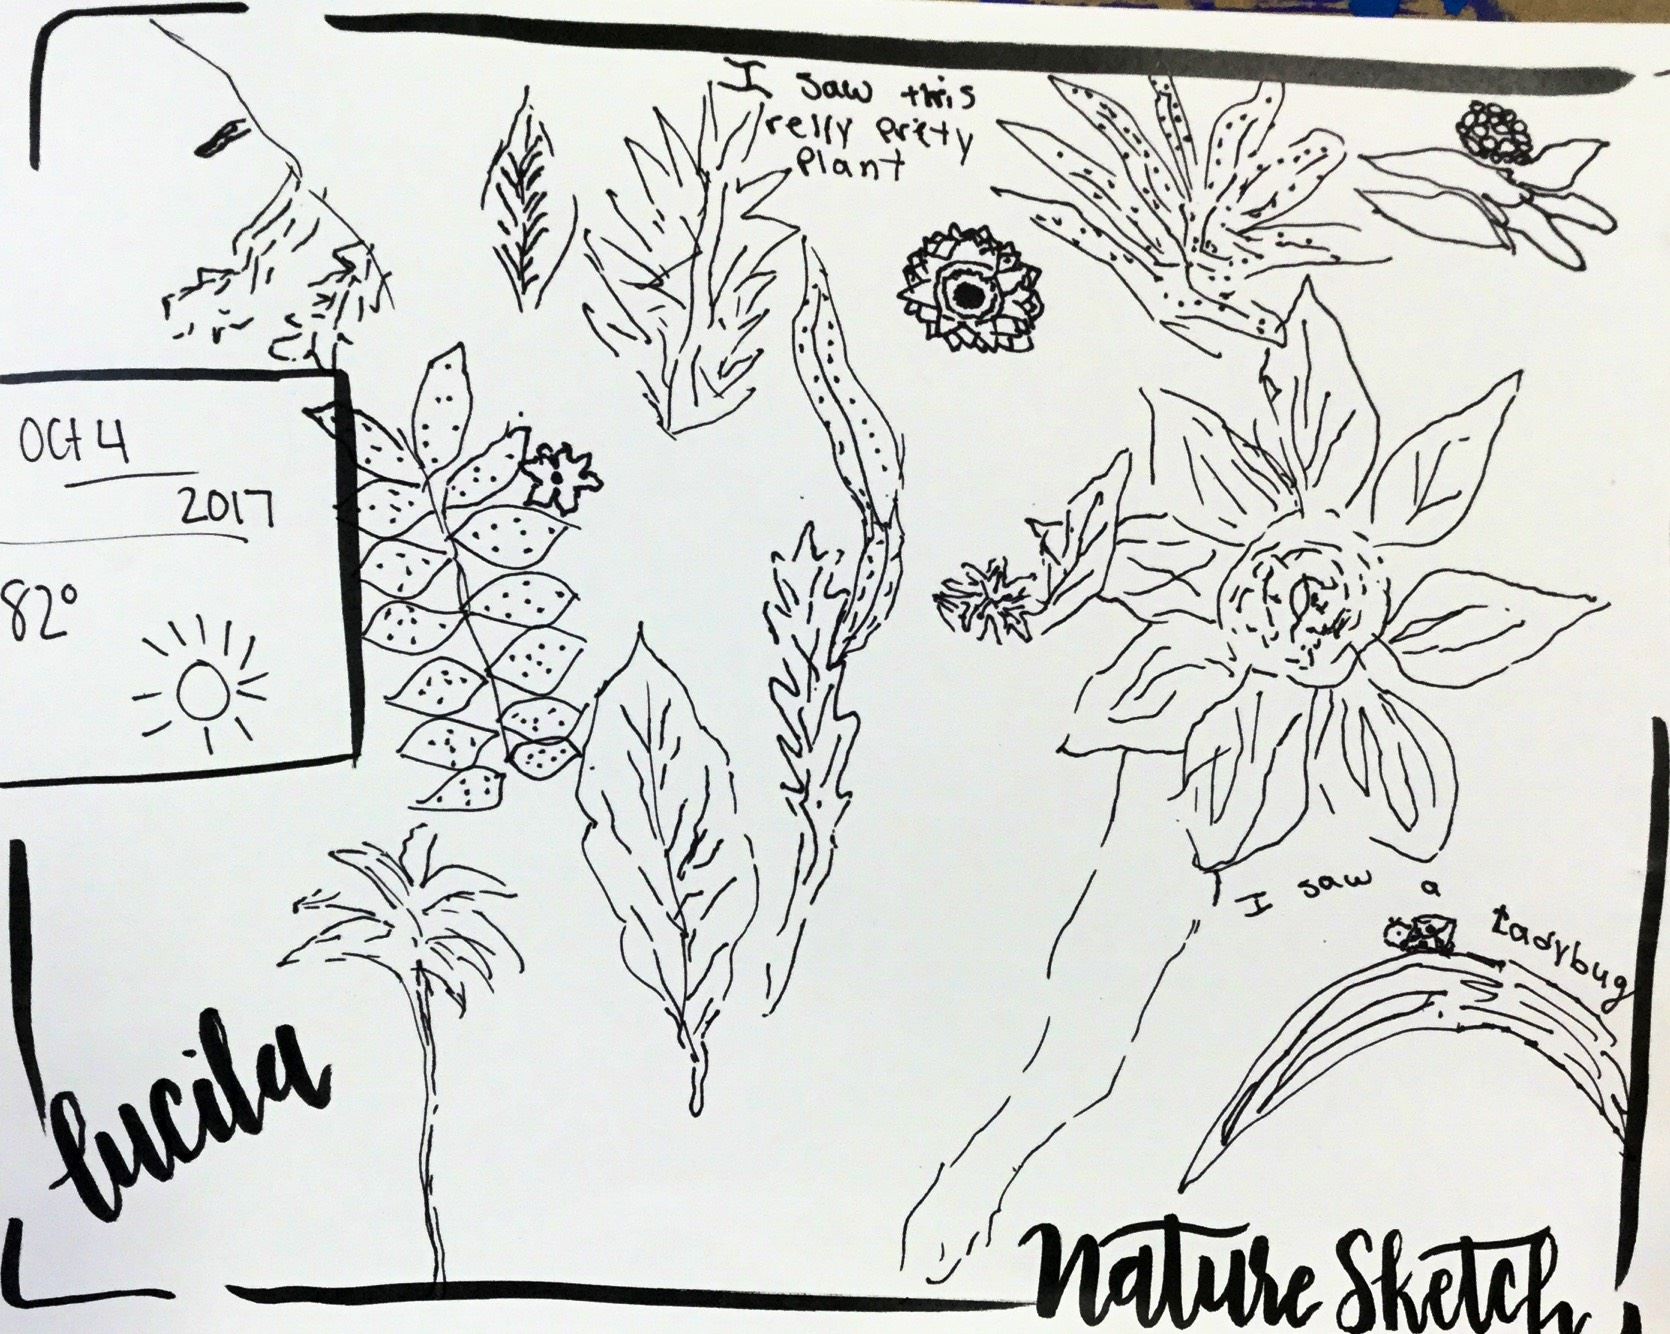 I saw this
relly prety
plant
Oct 4
2017
82°
I saw a
Ladybug
lucila
Nature Sketch